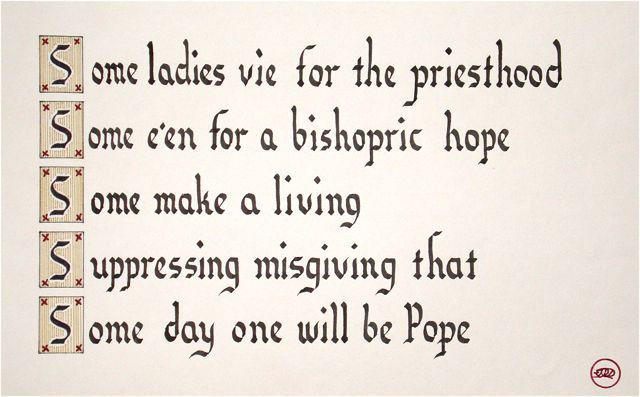 Some ladies vie for the priesthood
Some e'en for a bishopric hope
Some make a living
Suppressing misgiving that
Some day one will be Pope